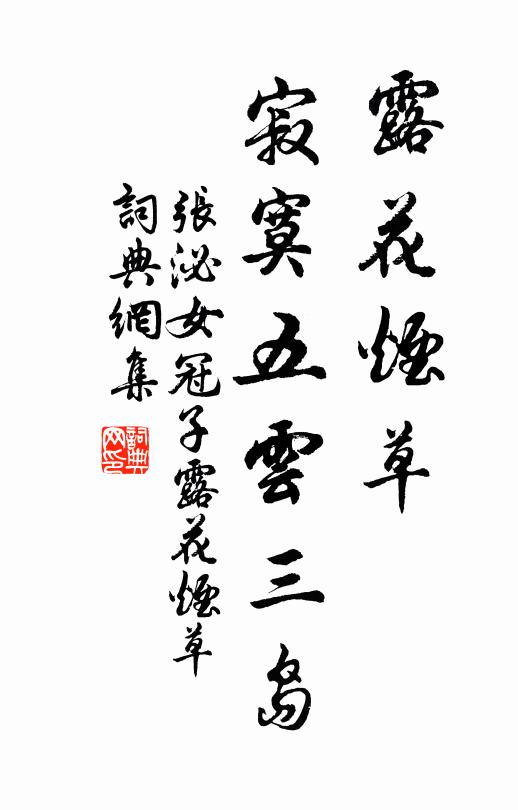 露花煙草
寂寞五雲三島
張泌女冠子露花煙草
詞典網集
詞典網印